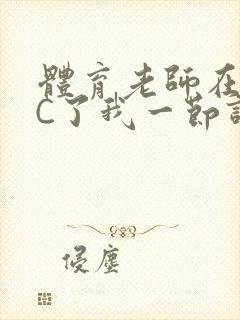 體育老師在
C了我一節
侵塵